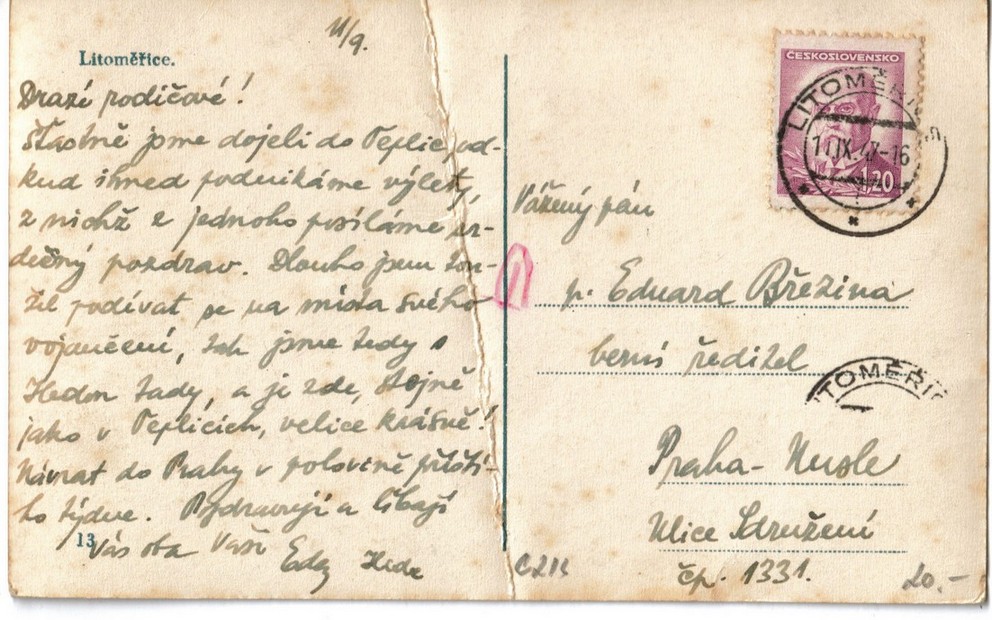 11/9.
Litoměřice.
Drazí rodičové!
Šťastně jsme dojeli do Teplic, od-
kud ihned podnikáme výlety,
z nichž z jednoho posíláme sr-
dečný pozdrav. Dlouho jsem tou-
žil podívat se na místa svého
vojančení, tak jsme tedy s
Hedou tady, a je zde, stejně
jako v Teplicích, velice krásně!
Návrat do Prahy v polovině příští-
ho týdne. Pozdravují a líbají
13 Vás oba Vaši Eda Heda
ČESKOSLOVENSKO
1,20
LITOMĚŘICE
11.IX.47-16
Vážený pán
p. Eduard Březina
berní ředitel
LITOMĚŘIC
Praha-Nusle
Ulice Sdružení
čp. 1331.
20.-